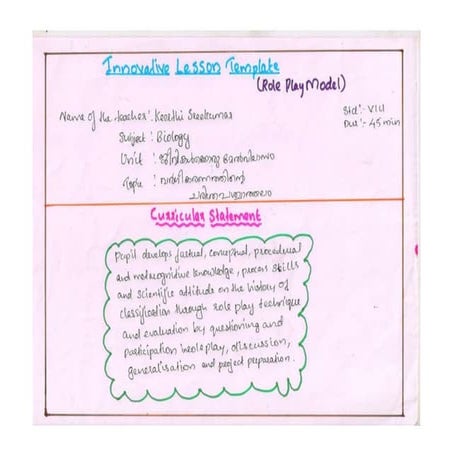 Innovative Lesson Template
(Role Play Model)
Name of the teacher: Keerthi Sreekumar
Std:- VIII
Subject : Biology
Dur:- 45 min
Unit :
Topic : വർഗീകരണത്തിന്റെ
ചരിത്രപശ്ചാത്തലം
Curricular Statement
Pupil develops factual, conceptual, procedural
and metacognitive knowledge, process skills
and scientific attitude on the history of
classification through role play technique
and evaluation by questioning and
participation in role play, discussion,
generalisation and project preparation.